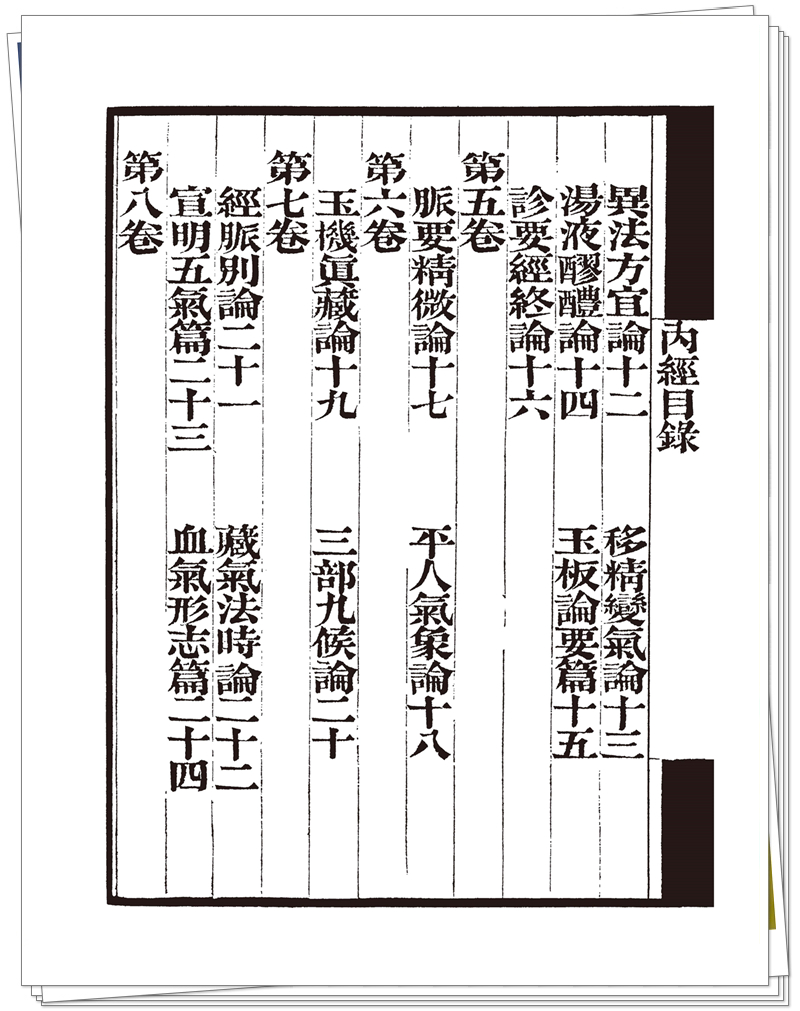 內經目錄
異法方宜論十二　移精變氣論十三
湯液醪醴論十四　玉板論要篇十五
診要經終論十六
第五卷
脈要精微論十七　平人氣象論十八
第六卷
玉機眞藏論十九　三部九候論二十
第七卷
經脈別論二十一　藏氣法時論二十二
宣明五氣篇二十三　血氣形志篇二十四
第八卷